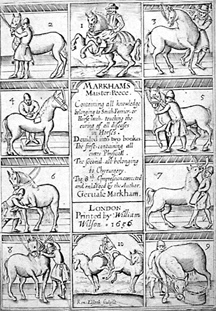 1
2
3
MARKHAMS
Maister-Peece.
Containing all knowledge
belonging to Smith, Farrier, or
Horse-leach, touching the
curing of all diseases
in Horses.
Devided into two bookes
The first containing all
cures Physicall:
The second all belonging
to Chyrurgery.
The 8th Impression, corrected
and inlarged by the Author.
Gervase Markham.
4
5
6
7
LONDON
Printed by William
Wilson. 1656
8
10
9